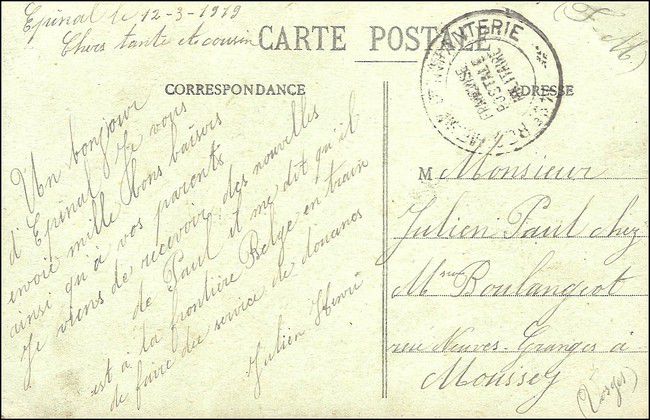 Epinal le 12-3-1919
Chers tante et cousin
(F-M)
CARTE POSTALE
CORRESPONDANCE
ADRESSE
INFANTERIE
FRANCAISE
POSTALE
MILITAIRE
Un bonjour
d'Epinal Je vous
envoie mille bons baisers
ainsi qu'à vos parents,
Je viens de recevoir des nouvelles
de Paul et me dit qu'il
est à la frontière Belge en train
de faire du service de douanes
Julien Henri
M Monsieur
Julien Paul chez
Mme Boulangeot
rue Neuves-Granges à
Moussey
(Vosges)